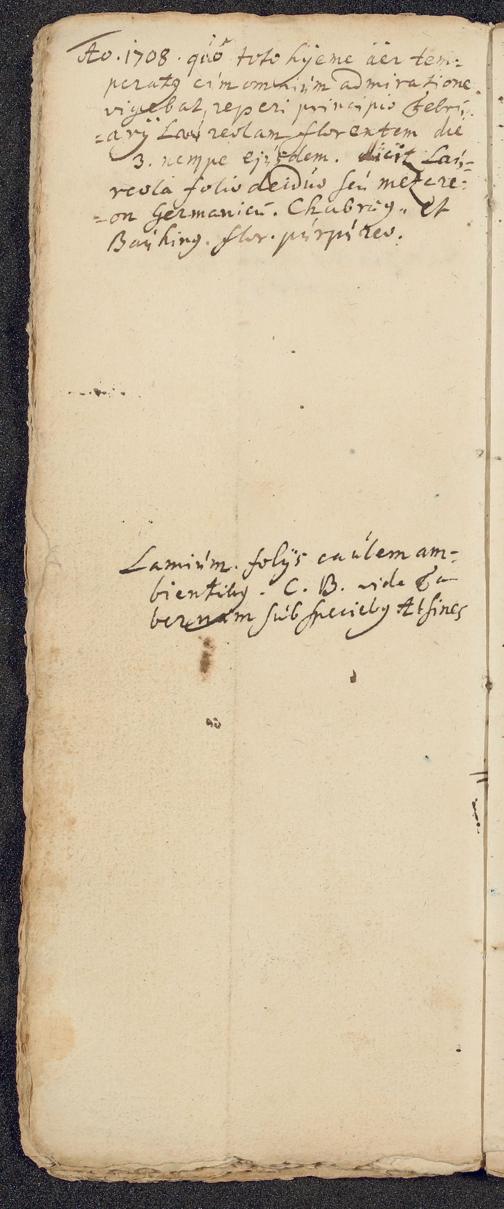 Ao. 1708. quo toto hyeme äer tem=
peratq cum omnium admiratione
vigebat, reperi principio Febru=
=arij Laureolam florentem die
3. nempe ejusdem. dicit Lau=
reola folio deiduo seu mezere=
=on Germanicu. Chabræy. et
Bauhinq. flor. purpureo.
Lamium. folijs caulem am=
bientibq. C. B. vide Ta=
bernam sub speciebq Alsines